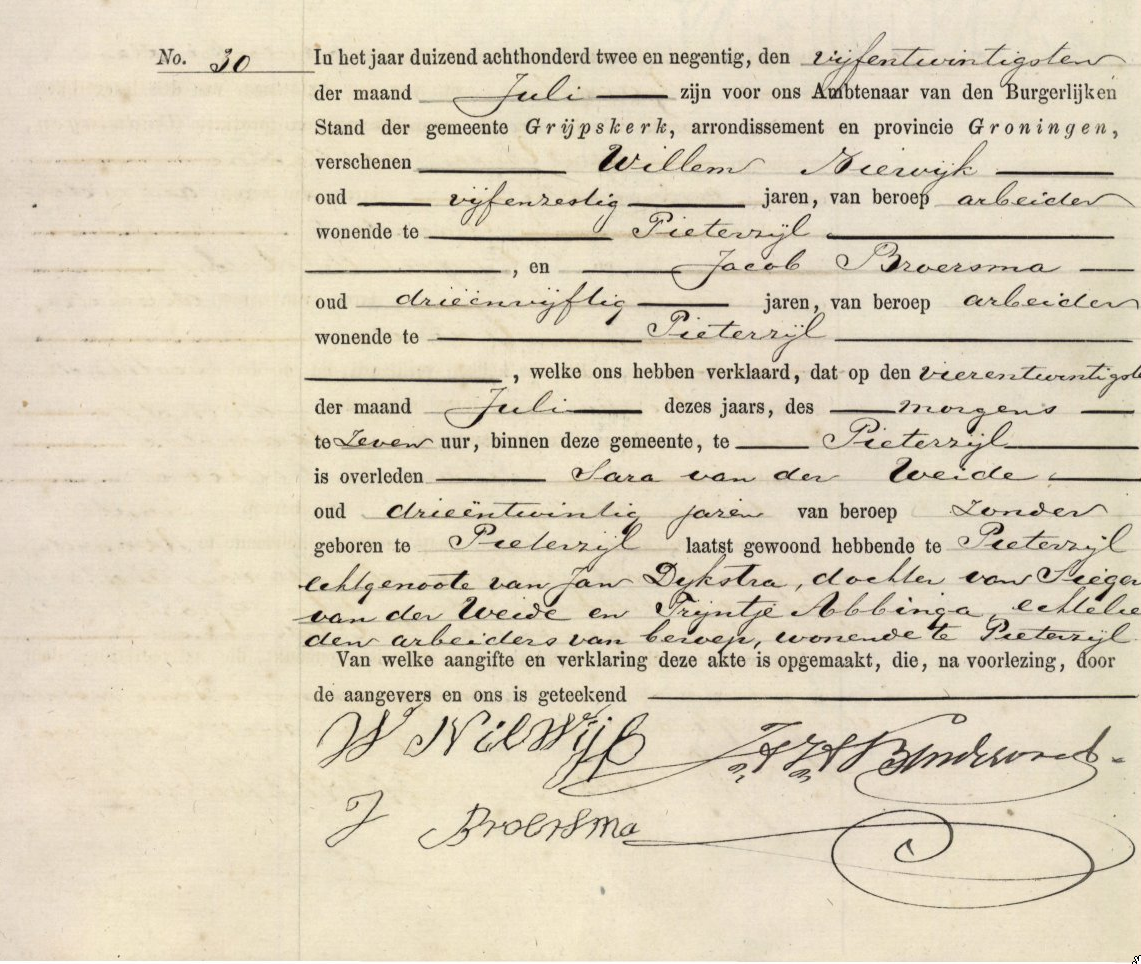 No. 30
In het jaar duizend achthonderd twee en negentig, den vijfentwintigsten
der maand Juli zijn voor ons Ambtenaar van den Burgerlijken
Stand der gemeente Grijpskerk, arrondissement en provincie Groningen,
verschenen Willem Niewijk
oud vijfenzestig jaren, van beroep arbeider
wonende te Pieterzijl
, en Jacob Broersma
oud drieënvijftig jaren, van beroep arbeider
wonende te Pieterzijl
, welke ons hebben verklaard, dat op den vierentwintigste
der maand Juli dezes jaars, des morgens
te Zeven uur, binnen deze gemeente, te Pieterzijl
is overleden Sara van der Weide
oud drieëntwintig jaren van beroep Zonder
geboren te Pieterzijl laatst gewoond hebbende te Pieterzijl
echtgenoote van Jan Dykstra, dochter van Sieger
van der Weide en Trijntje Abbinga, echtelie
den arbeiders van beroep, wonende te Pieterzijl
Van welke aangifte en verklaring deze akte is opgemaakt, die, na voorlezing, door
de aangevers en ons is geteekend
W NieWijk
J Broersma